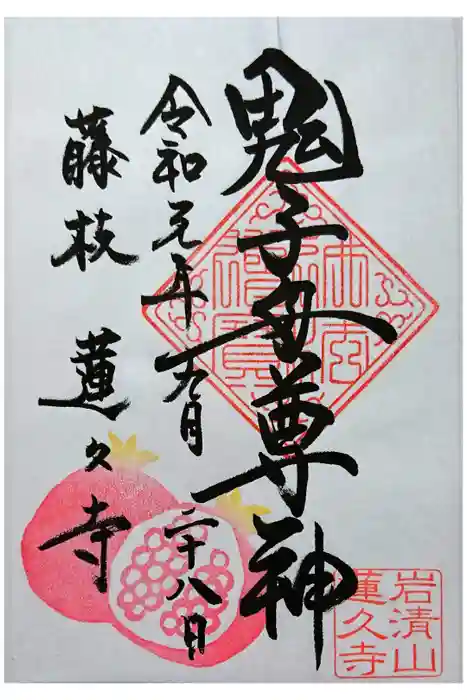 鬼子母尊神
令和元年 月二十八日
藤枝 蓮久寺
岩清山
蓮久寺